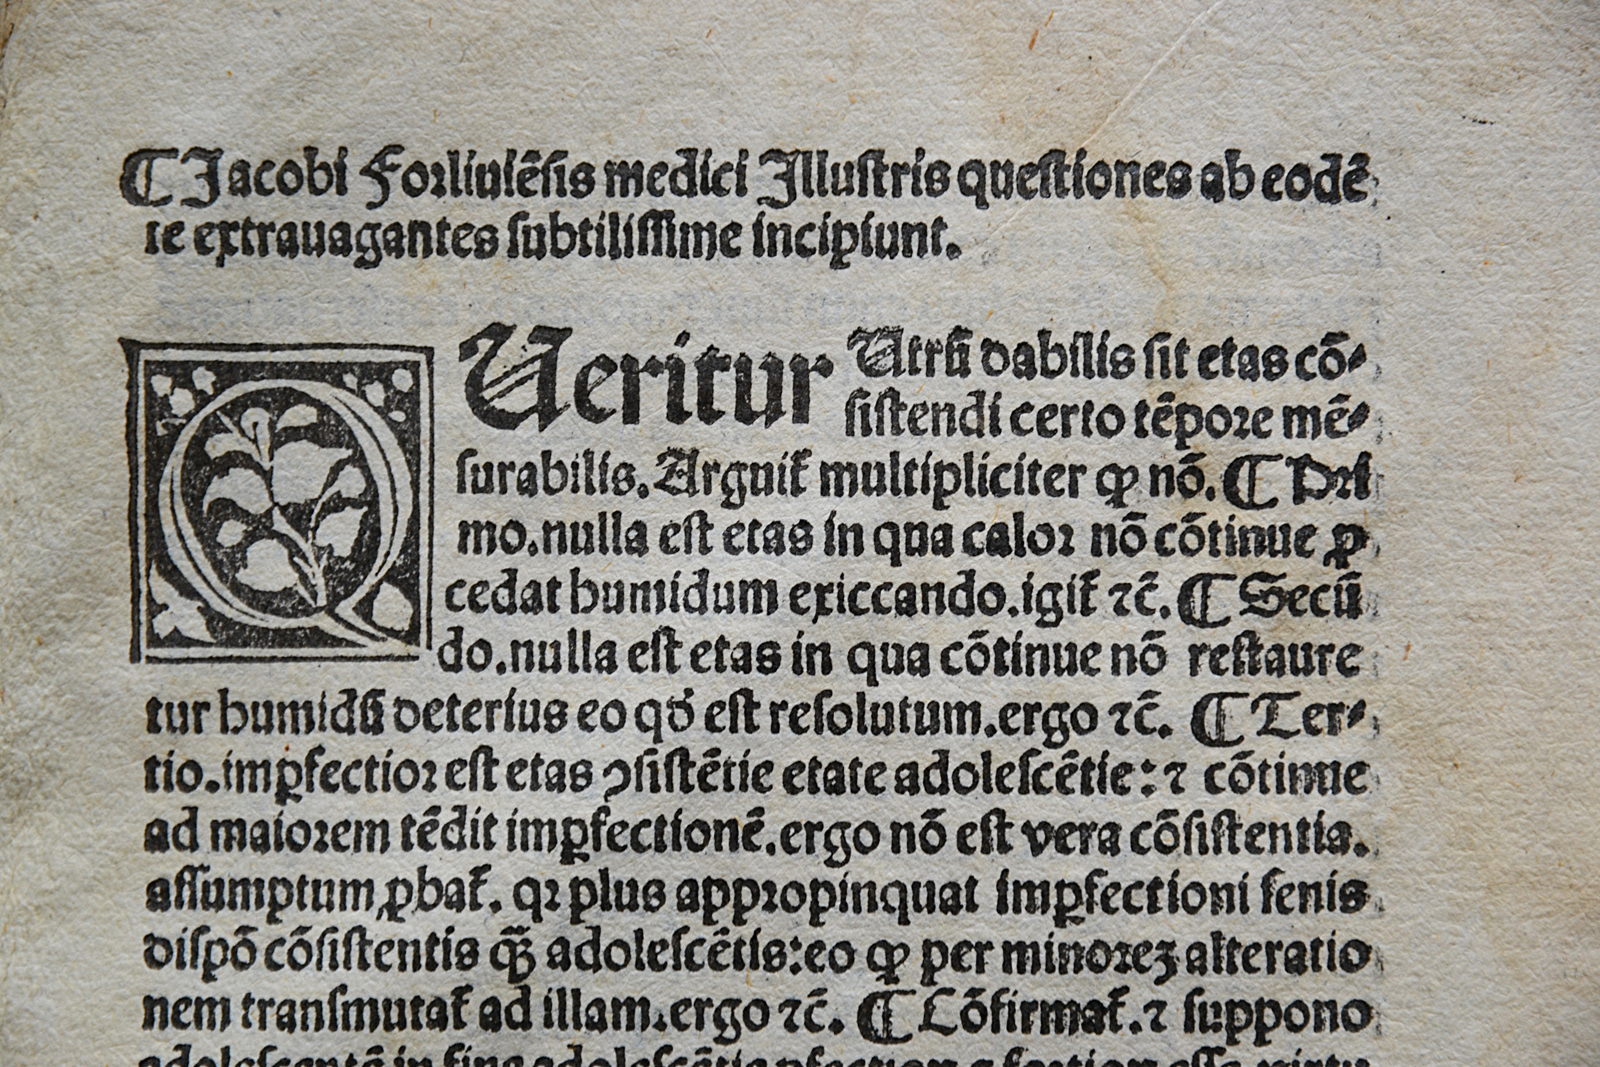 ⸿ Jacobi Forliuiēsis medici Illustris questiones ab eodē
te extrauagantes subtilissime incipiunt.
QUeritur Utrū dabilis sit etas cō⸗
sistendi certo tēpore mē⸗
surabilis. Arguiť multipliciter ꝙ nō. ⸿ Pri
mo. nulla est etas in qua calor nō cōtinue ꝓ
cedat humidum exiccando. igiť ⁊c̄. ⸿ Secū
do. nulla est etas in qua cōtinue nō restaure
tur humidū deterius eo qď est resolutum. ergo ⁊c̄. ⸿ Ter⸗
tio. imꝑfectior est etas ꝯsistētie etate adolescētie: ⁊ cōtinue
ad maiorem tēdit imꝑfectionē. ergo nō est vera cōsistentia.
assumptum ꝓbať. qꝛ plus appropinquat imꝑfectioni senis
dispō cōsistentis qȝ̄ adolescētis: eo ꝙ per minoreꝫ alteratio
nem transmutať ad illam. ergo ⁊c̄. ⸿ Cōfirmať. ⁊ suppono
adolescentē in fine adolescētie